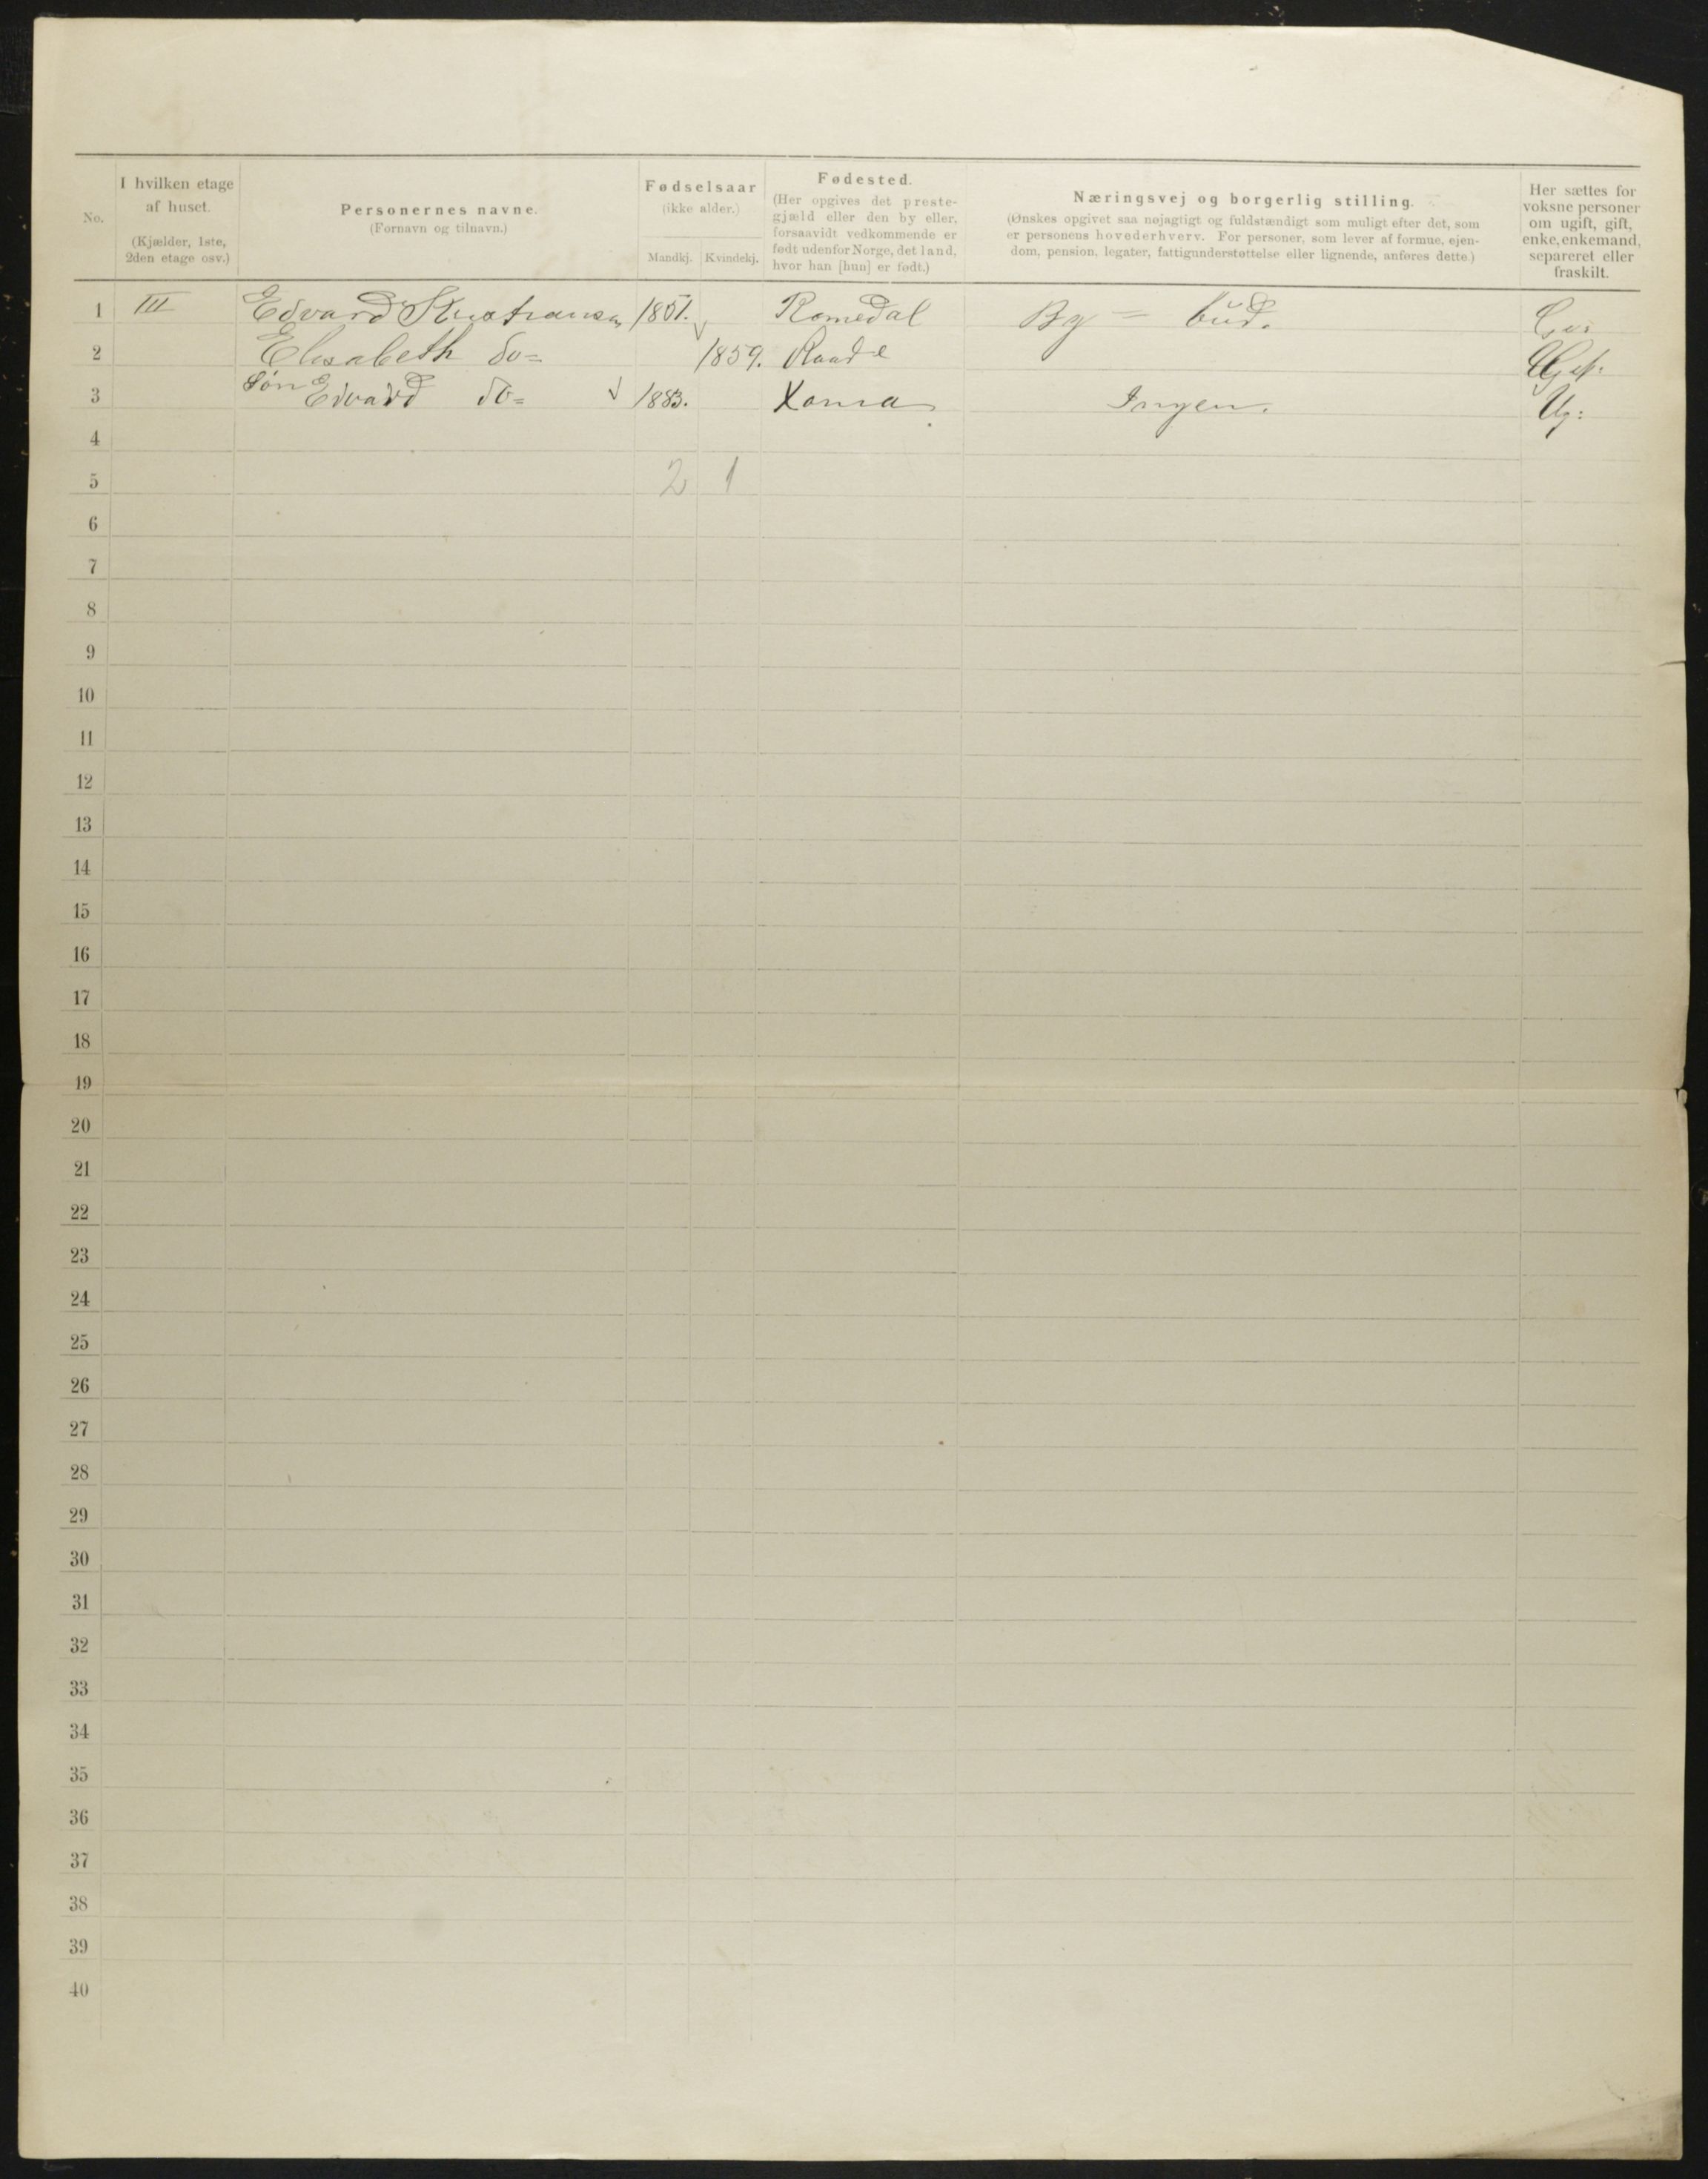 No.
I hvilken etage
af huset.
(Kjælder, 1ste,
2den etage osv.)
Personernes navne.
(Fornavn og tilnavn.)
Fødselsaar
(ikke alder.)
Mandkj. Kvindekj.
Fødested.
(Her opgives det preste-
gjæld eller den by eller,
forsaavidt vedkommende er
født udenfor Norge, det land,
hvor han [hun] er født.)
Næringsvej og borgerlig stilling.
(Ønskes opgivet saa nøjagtigt og fuldstændigt som muligt efter det, som
er personens hovederhverv. For personer, som lever af formue, ejen-
dom, pension, legater, fattigunderstøttelse eller lignende, anføres dette.)
Her sættes for
voksne personer
om ugift, gift,
enke, enkemand,
separeret eller
fraskilt.
1 III Edvard Kristiansen 1851. Romedal By = bud.
2 Elisabeth do= 1859. Raade
3 Søn Edvard do= 1883. Xania Ingen. Ug:
4
5 2 1
6
7
8
9
10
11
12
13
14
15
16
17
18
19
20
21
22
23
24
25
26
27
28
29
30
31
32
33
34
35
36
37
38
39
40